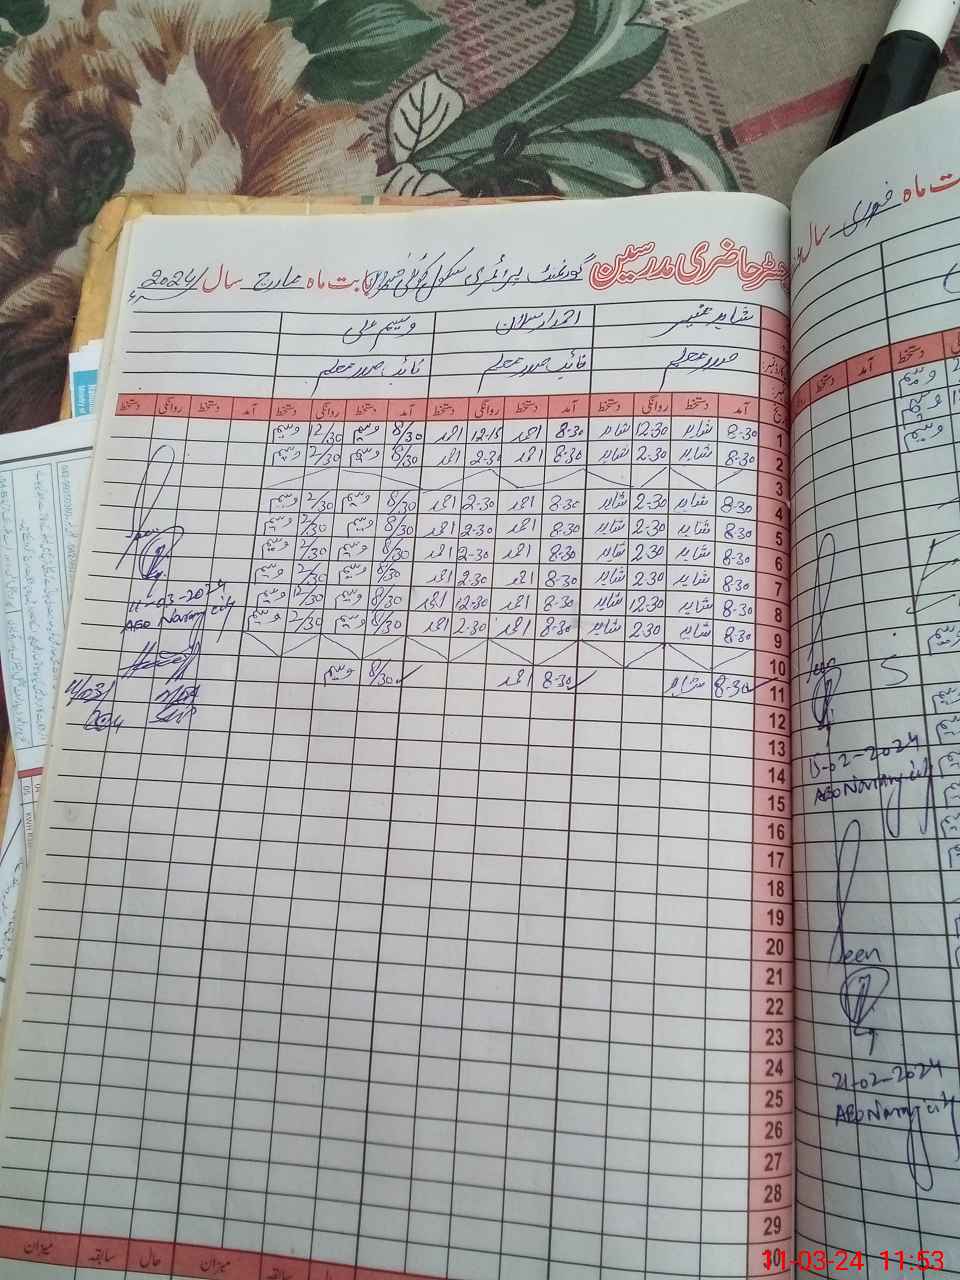 رجسٹر حاضری مدرسین گورنمنٹ پرائمری سکول بابت ماہ مارچ سال 2024ء
شاہد احمد ارسلان وسیم علی
صدر معلم نائب صدر معلم نائب صدر معلم
آمد دستخط روانگی دستخط آمد دستخط روانگی دستخط آمد دستخط روانگی دستخط آمد دستخط روانگی دستخط
1 8-30 شاہد 12.30 شاہد 8-30 احمد 12-15 احمد 8/30 وسیم 12/30 وسیم
2 8-30 شاہد 2-30 شاہد 8-30 احمد 2-30 احمد 8/30 وسیم 2/30 وسیم
3
4 8-30 شاہد 2-30 شاہد 8-30 احمد 2-30 احمد 8/30 وسیم 2/30 وسیم
5 8-30 شاہد 2-30 شاہد 8-30 احمد 2-30 احمد 8/30 وسیم 2/30 وسیم
6 8-30 شاہد 2-30 شاہد 8-30 احمد 2-30 احمد 8/30 وسیم 2/30 وسیم
7 8-30 شاہد 2-30 شاہد 8-30 احمد 2-30 احمد 8/30 وسیم 2/30 وسیم
8 8-30 شاہد 12-30 شاہد 8-30 احمد 12-30 احمد 8/30 وسیم 12/30 وسیم
9 8-30 شاہد 2-30 شاہد 8-30 احمد 2-30 احمد 8/30 وسیم 2/30 وسیم
10
11 8-30 شاہد 8-30 احمد 8/30 وسیم
12
13
14
15
16
17
18
19
20
21
22
23
24
25
26
27
28
29
30
میزان سابقہ حال میزان سابقہ
Seen
11-03-2024
AEO Narang city
11/03/
2024
ماہ فروری سال
آمد دستخط
وسیم
وسیم
وسیم
Seen
15-02-2024
AEO Narang city
Seen
21-02-2024
AEO Narang city
11-03-24 11:53